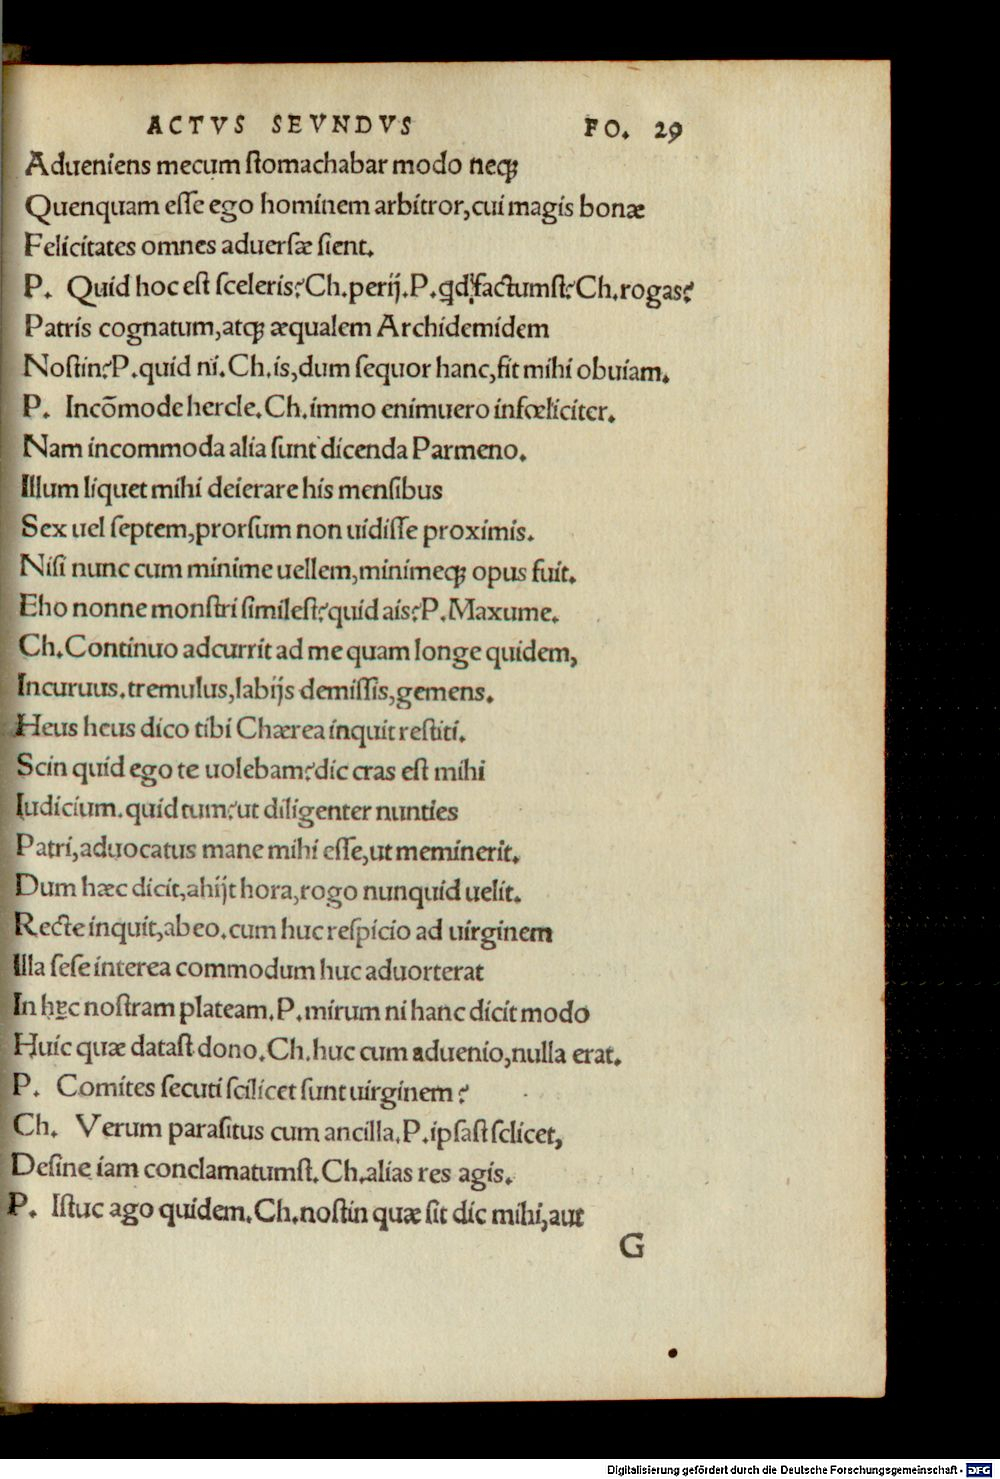 ACTVS SEVNDVS FO. 29
Adueniens mecum ſtomachabar modo neqꝫ
Quenquam eſſe ego hominem arbitror,cui magis bonæ
Felicitates omnes aduerſæ ſient.
P. Quid hoc eſt ſceleris?Ch.perij.P.qd factumſt?Ch.rogas?
Patris cognatum,atqꝫ æqualem Archidemidem
Noſtin?P.quid ni.Ch.is,dum ſequor hanc,fit mihi obuiam.
P. Incõmode hercle.Ch.immo enimuero infœliciter.
Nam incommoda alia ſunt dicenda Parmeno.
Illum liquet mihi deierare his menſibus
Sex uel ſeptem,prorſum non uidiſſe proximis.
Niſi nunc cum minime uellem,minimeqꝫ opus fuit.
Eho nonne monſtri ſimileſt?quid ais?P.Maxume.
Ch.Continuo adcurrit ad me quam longe quidem,
Incuruus.tremulus,labijs demiſſis,gemens.
Heus heus dico tibi Chærea inquit reſtiti.
Scin quid ego te uolebam?dic cras eſt mihi
Iudicium.quid tum?ut diligenter nunties
Patri,aduocatus mane mihi eſſe,ut meminerit.
Dum hæc dicit,ahijt hora,rogo nunquid uelit.
Recte inquit,abeo.cum huc reſpicio ad uirginem
Illa ſeſe interea commodum huc aduorterat
In hęc noſtram plateam.P.mirum ni hanc dicit modo
Huic quæ dataſt dono.Ch.huc cum aduenio,nulla erat.
P. Comites ſecuti ſcilicet ſunt uirginem?
Ch. Verum paraſitus cum ancilla.P.ipſaſt ſclicet,
Deſine iam conclamatumſt.Ch.alias res agis.
P. Iſtuc ago quidem.Ch.noſtin quæ ſit dic mihi,aut
G
Digitalisierung gefördert durch die Deutsche Forschungsgemeinschaft - DFG